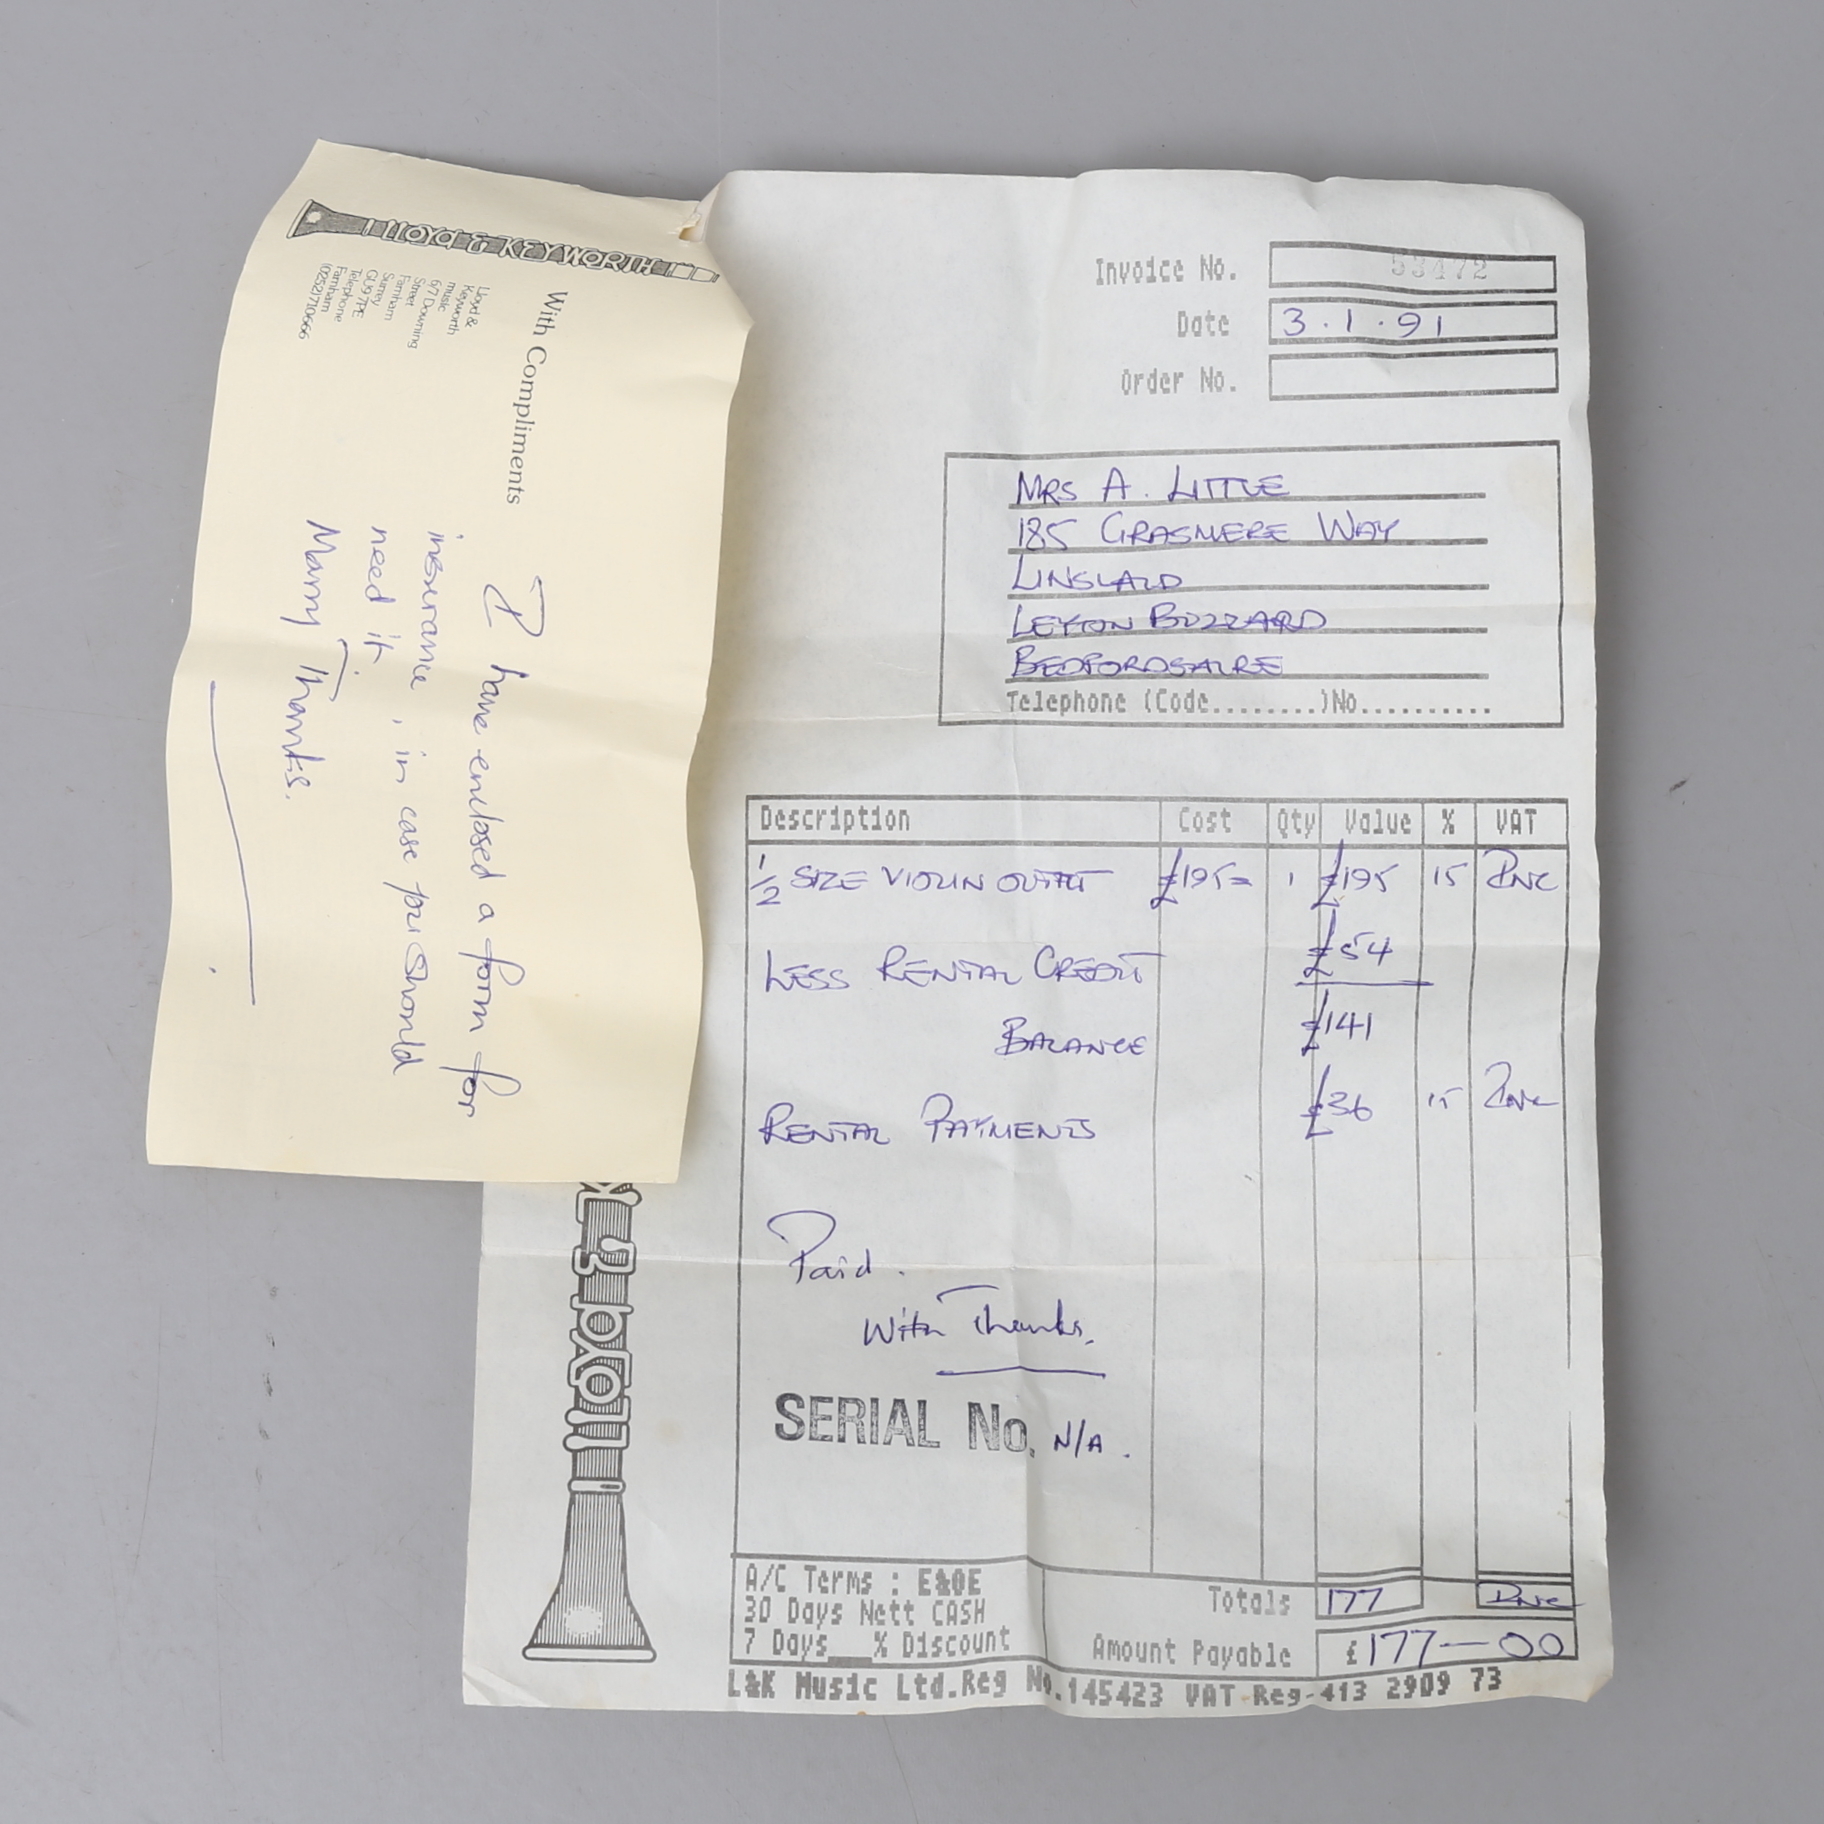 LLOYD & KEYWORTH
Lloyd &
Keyworth
music
6/7 Downing
Street
Farnham
Surrey
GU9 7PE
Telephone
Farnham
(0252) 710666
With Compliments
I have enclosed a form for
insurance, in case you should
need it
Many Thanks.
Invoice No. 53472
Date 3.1.91
Order No.
MRS A. LITTLE
185 GRASMERE WAY
LINSLALD
LEYTON BUZZARD
BEDFORDSHIRE
Telephone (Code........)No..........
Description Cost Qty Value % VAT
1/2 SIZE VIOLIN OUTFIT £195= 1 £195 15 INC
LESS RENTAL CREDIT £54
BALANCE £141
RENTAL PAYMENTS £36 15 INC
Paid.
With Thanks.
SERIAL No. N/A.
A/C Terms : E&OE
30 Days Nett CASH
7 Days___% Discount
Totals 177 INC
Amount Payable £177-00
L&K Music Ltd.Reg No.145423 VAT Reg-413 2909 73
LLOYD & K